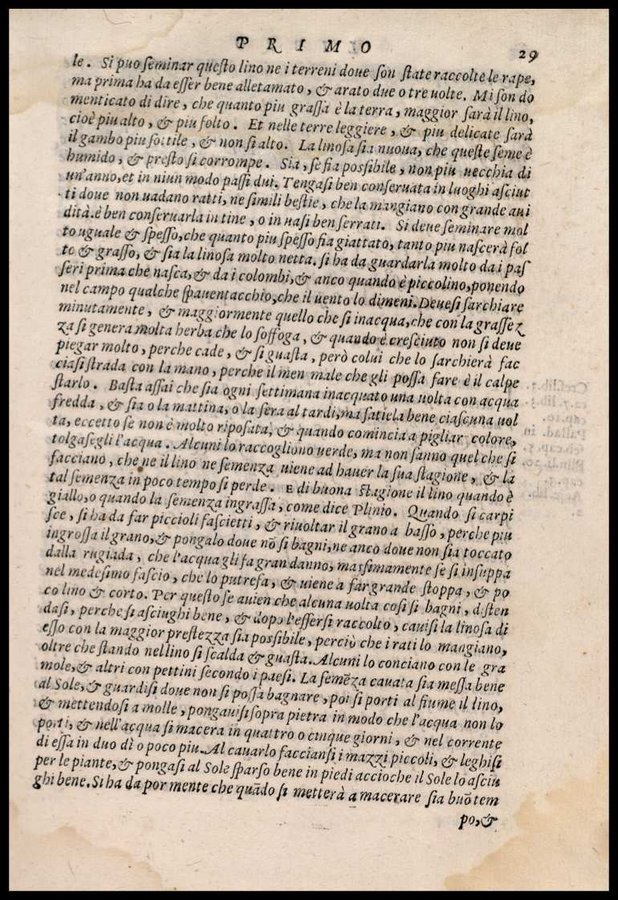 PRIMO 29
le. Si puo seminar questo lino ne i terreni doue son state raccolte le rape,
ma prima ha da esser bene alletamato, & arato due o tre uolte. Mi son do
menticato di dire, che quanto piu grassa è la terra, maggior sarà il lino,
cioè piu alto, & piu folto. Et nelle terre leggiere, & piu delicate sarà
il gambo piu sottile, & non si alto. La linosa sia nuoua, che queste seme è
humido, & presto si corrompe. Sia, se fia possibile, non piu uecchia di
un'anno, et in niun modo passi dui. Tengasi ben conseruata in luoghi asciut
ti doue non uadano ratti, ne simili bestie, che la mangiano con grande aui
dità. è ben conseruarla in tine, o in uasi ben serrati. Si deue seminare mol
to uguale & spesso, che quanto piu spesso fia giattato, tanto piu nascerà fol
to & grasso, & sia la linosa molto netta. si ha da guardarla molto da i pas
seri prima che nasca, & da i colombi, & anco quando è piccolino, ponendo
nel campo qualche spauentacchio, che il uento lo dimeni. Deuesi sarchiare
minutamente, & maggiormente quello che si inacqua, che con la grassez
za si genera molta herba che lo soffoga, & quando è cresciuto non si deue
piegar molto, perche cade, & si guasta, però colui che lo sarchierà fac
ciasi strada con la mano, perche il men male che gli possa fare è il calpe
starlo. Basta assai che sia ogni settimana inacquato una uolta con acqua
fredda, & sia o la mattina, o la sera al tardi, ma satiela bene ciascuna uol
ta, eccetto se non è molto riposata, & quando comincia a pigliar colore,
tolgasegli l'acqua. Alcuni lo raccogliono uerde, ma non sanno quel che si
facciano, che ne il lino ne semenza uiene ad hauer la sua stagione, & la
tal semenza in poco tempo si perde. E di buona stagione il lino quando è
giallo, o quando la semenza ingrassa, come dice Plinio. Quando si carpi
sce, si ha da far piccioli fascietti, & riuoltar il grano a basso, perche piu
ingrossa il grano, & pongalo doue nõ si bagni, ne anco doue non sia toccato
dalla rugiada, che l'acqua gli fa gran danno, massimamente se si insuppa
nel medesimo fascio, che lo putrefa, & uiene a far grande stoppa, & po
co lino & corto. Per questo se auien che alcuna uolta cosi si bagni, disten
dasi, perche si asciughi bene, & dopo l'essersi raccolto, cauisi la linosa di
esso con la maggior prestezza sia possibile, perciò che i rati lo mangiano,
oltre che stando nel lino si scalda & guasta. Alcuni lo conciano con le gra
mole, & altri con pettini secondo i paesi. La semẽza cauata sia messa bene
al Sole, & guardisi doue non si possa bagnare, poi si porti al fiume il lino,
& mettendosi a molle, pongauisi sopra pietra in modo che l'acqua non lo
porti, & nell'acqua si macera in quattro o cinque giorni, & nel corrente
di essa in duo dì o poco piu. Al cauarlo facciansi i mazzi piccoli, & leghisi
per le piante, & pongasi al Sole sparso bene in piedi accioche il Sole lo asciu
ghi bene. Si ha da por mente che quãdo si metterà a macerare sia buõ tem
po, &